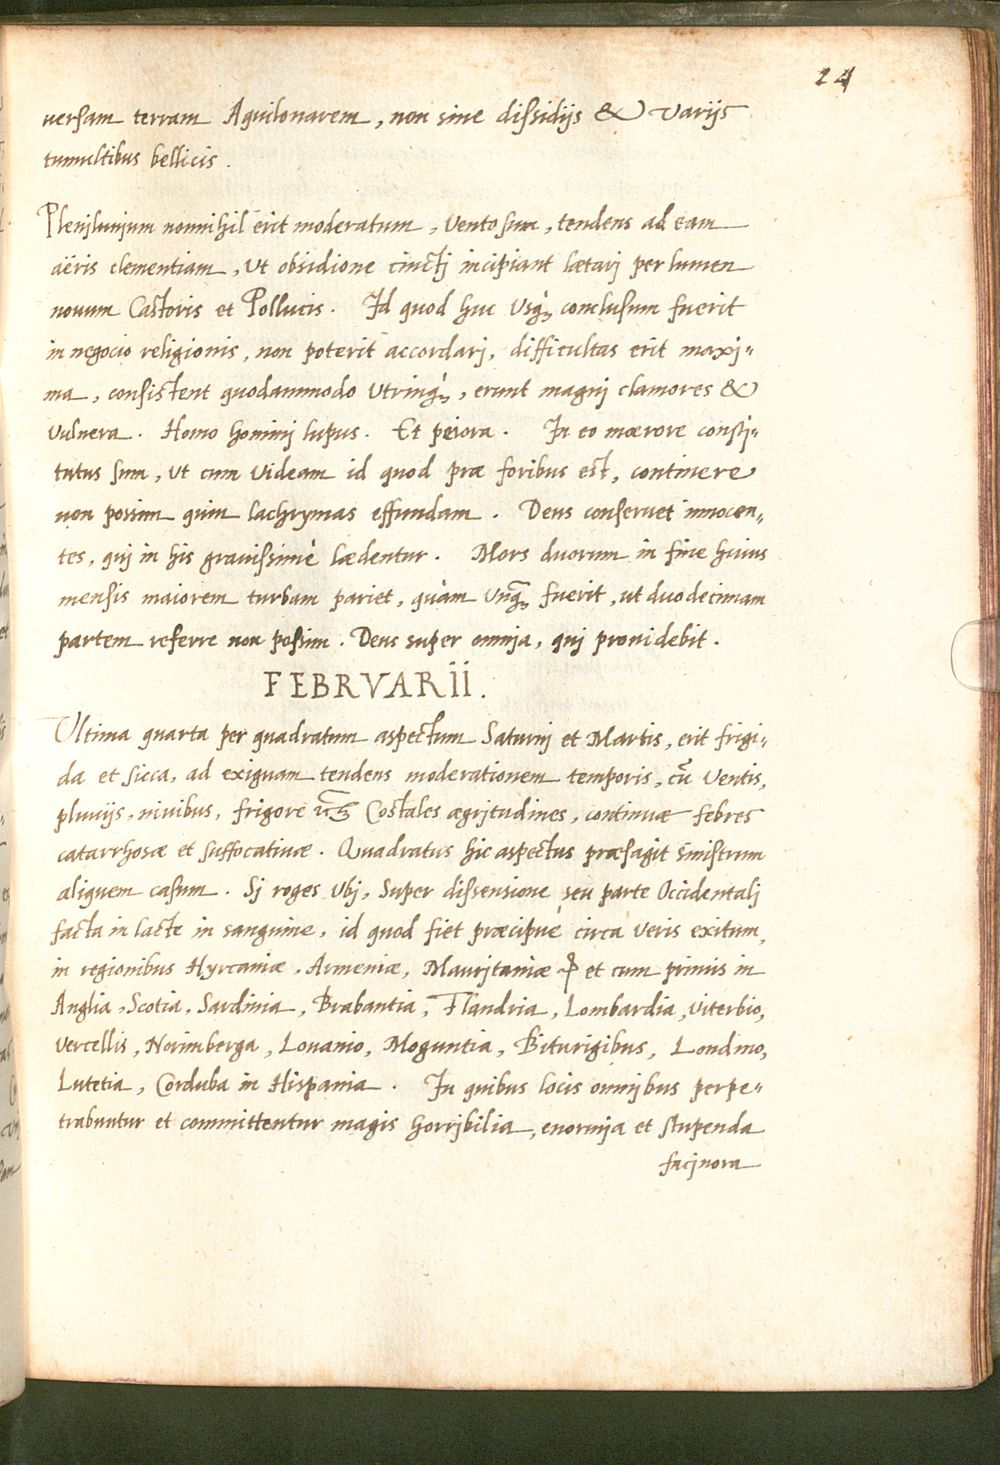 24
uersam terram Aquilonarem, non sine dißidijs & Varijs
tumultibus bellicis.
Plenjlunjum nonnihil erit moderatum, Ventosum, tendens ad eam
aëris clementiam, Vt obsidione cinctj incipiant lætarj per lumen
nouum Castoris et Pollucis. Id quod huc Vsq; conclusum fuerit
in negocio religionis, non poterit accordarj, difficultas erit maxj=
ma, consistent quodammodo Vtrinq;, erunt magnj clamores &
Vulnera. Homo hominj lupus. Et peiora. In eo mœrore constj=
tutus sum, Vt cum Videam id quod præ foribus est, continere
non possim quin lachrymas effundam. Deus conseruet innocen=
tes, quj in his grauißimè lædentur. Mors duorum in fine huius
mensis maiorem turbam pariet, quàm Vnq̃; fuerit, ut duodecimam
partem referre non poßim. Deus super omnja, quj prouidebit.
FEBRVARII.
Vltima quarta per quadratum aspectum Saturnj et Martis, erit frigi=
da et sicca, ad exiguam tendens moderationem temporis, cũ Ventis,
pluuijs, niuibus, frigore Costales ægrjtudines, continuæ febres
catarrhosæ et suffocatiuæ. Quadratus hic aspectus præsagit sinistrum
aliquem casum. Sj roges Vbj, Super dissensione seu parte Occidentalj
facta in lacte in sanguine, id quod fiet præcipuè circa Veris exitum,
in regionibus Hyrcaniæ, Armeniæ, Maurjtaniæ et cum primis in
Anglia, Scotia, Sardinia, Brabantia, Flandria, Lombardia, Viterbio,
Vercellis, Norimberga, Louanio, Moguntia, Biturigibus, Londino,
Lutetia, Corduba in Hispania. In quibus locis omnjbus perpe=
trabuntur et committentur magis horrjbilia, enormja et stupenda
facjnora